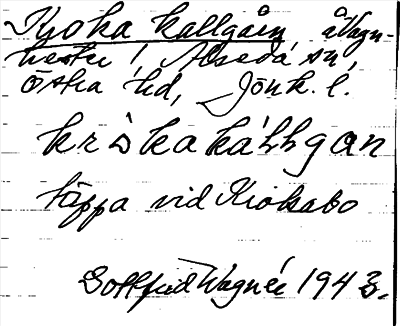 Kroka kallgårn åVagn-
hester 1, Alseda sn,
Östra hd, Jönk. l.
kròkakáḷḷgan
täppa vid Krokabo
Gottfrid Wagnér 1943.